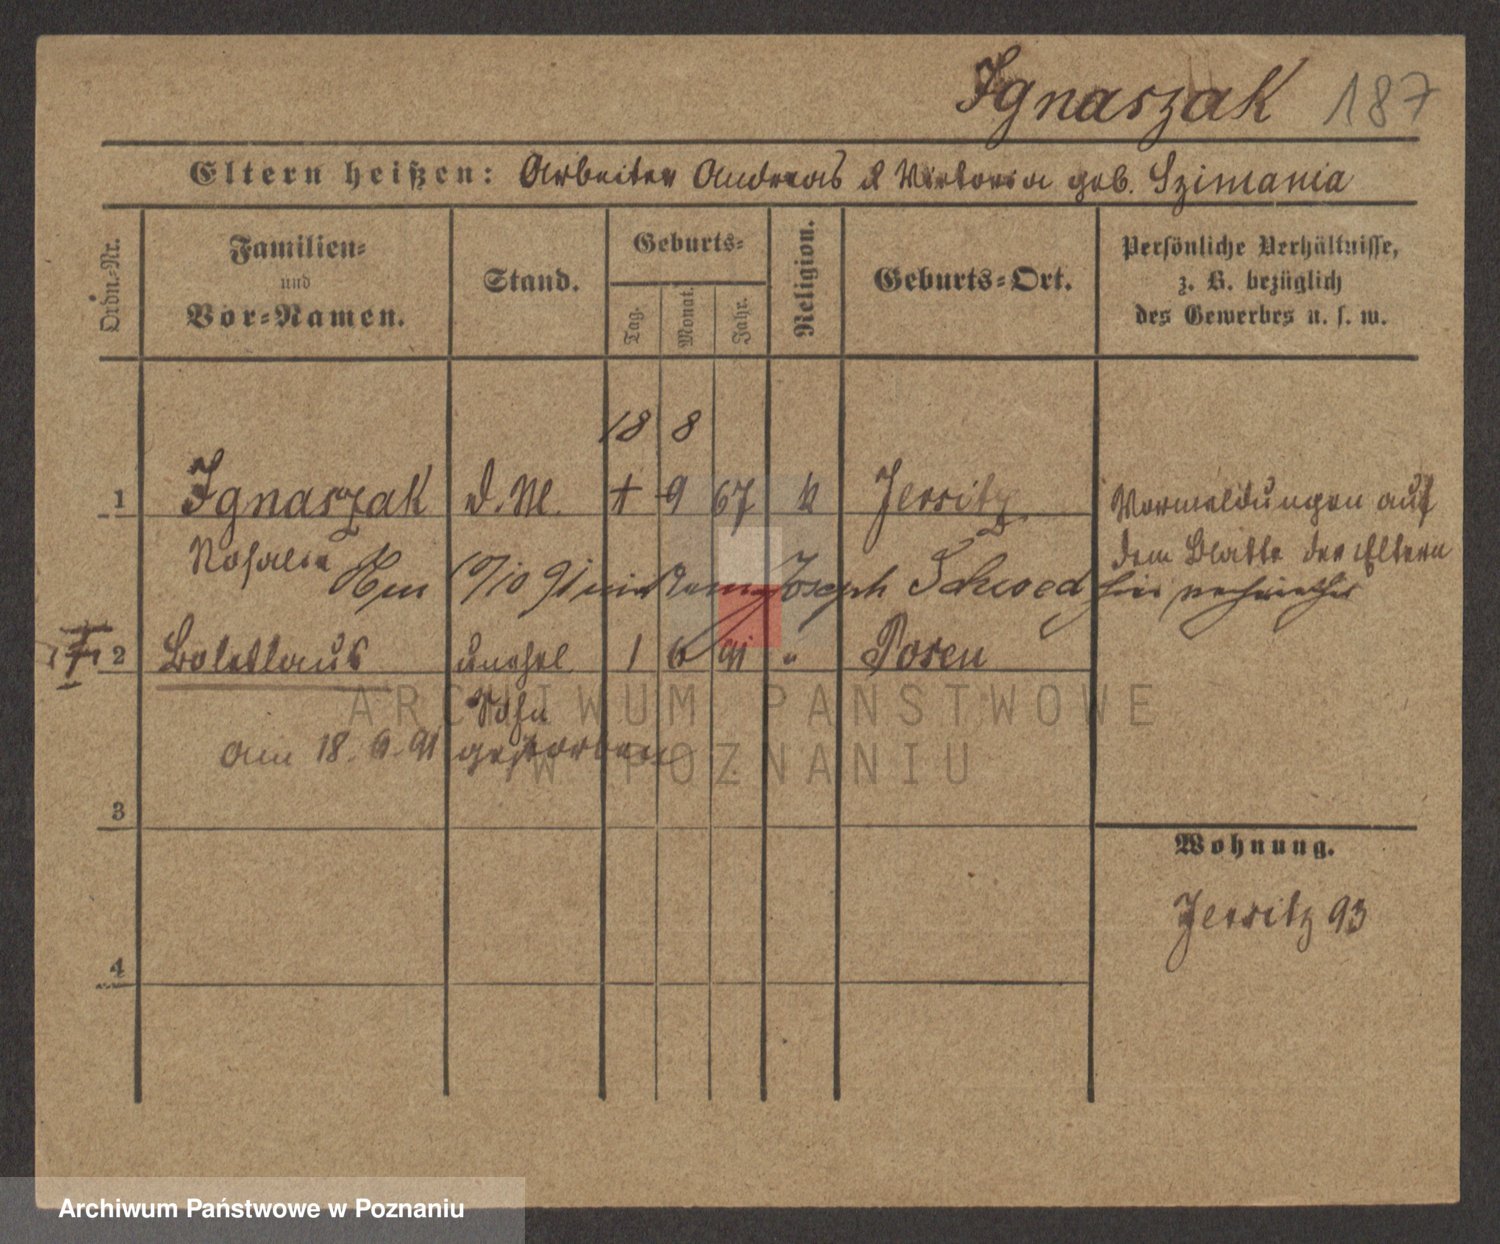 Ignaszak 187
Eltern heißen: Arbeiter Andreas & Victoria geb. Szimania
Ordn.-Nr.
Familien-
und
Vor-Namen.
Stand.
Geburts-
Tag.
Monat.
Jahr.
Religion.
Geburts-Ort.
Persönliche Verhältnisse,
z. B. bezüglich
des Gewerbes u. s. w.
18 8
1 Ignaszak d. M. 9 67 k Jersitz
Vormeldungen auf
dem Blatte der Eltern
Rosalia
10/10 91 mit Joseph hier verheirathet
2 Boleslaus unehel. 1 6 91 " Posen
Sohn
am 18. 9. 91 gestorben
3
Wohnung.
Jersitz 93
4
ARCHIWUM PAŃSTWOWE
W POZNANIU
Archiwum Państwowe w Poznaniu